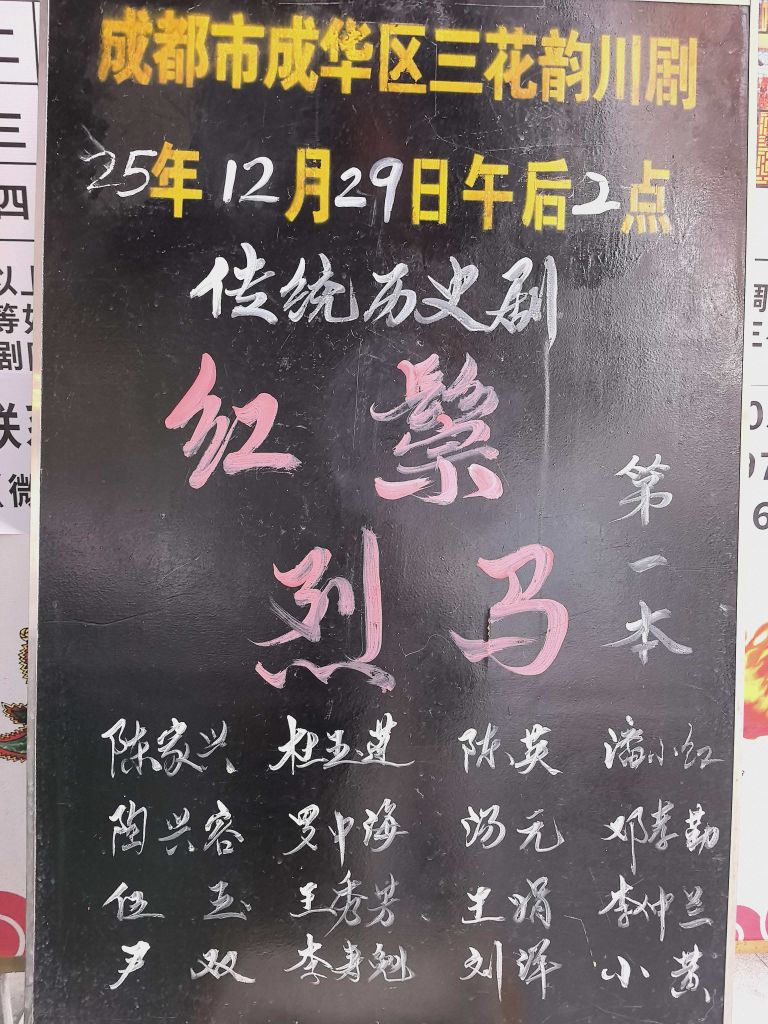 成都市成华区三花韵川剧
25年12月29日午后2点
传统历史剧
红鬃
烈马
第一本
陈家兴 杜玉莲 陈英 潘小红
陶兴容 罗中海 汤元 邓孝勤
伍玉 王秀芳 王娟 李仲兰
尹双 李勇魁 刘洋 小黄
三
四
以上
剧
微